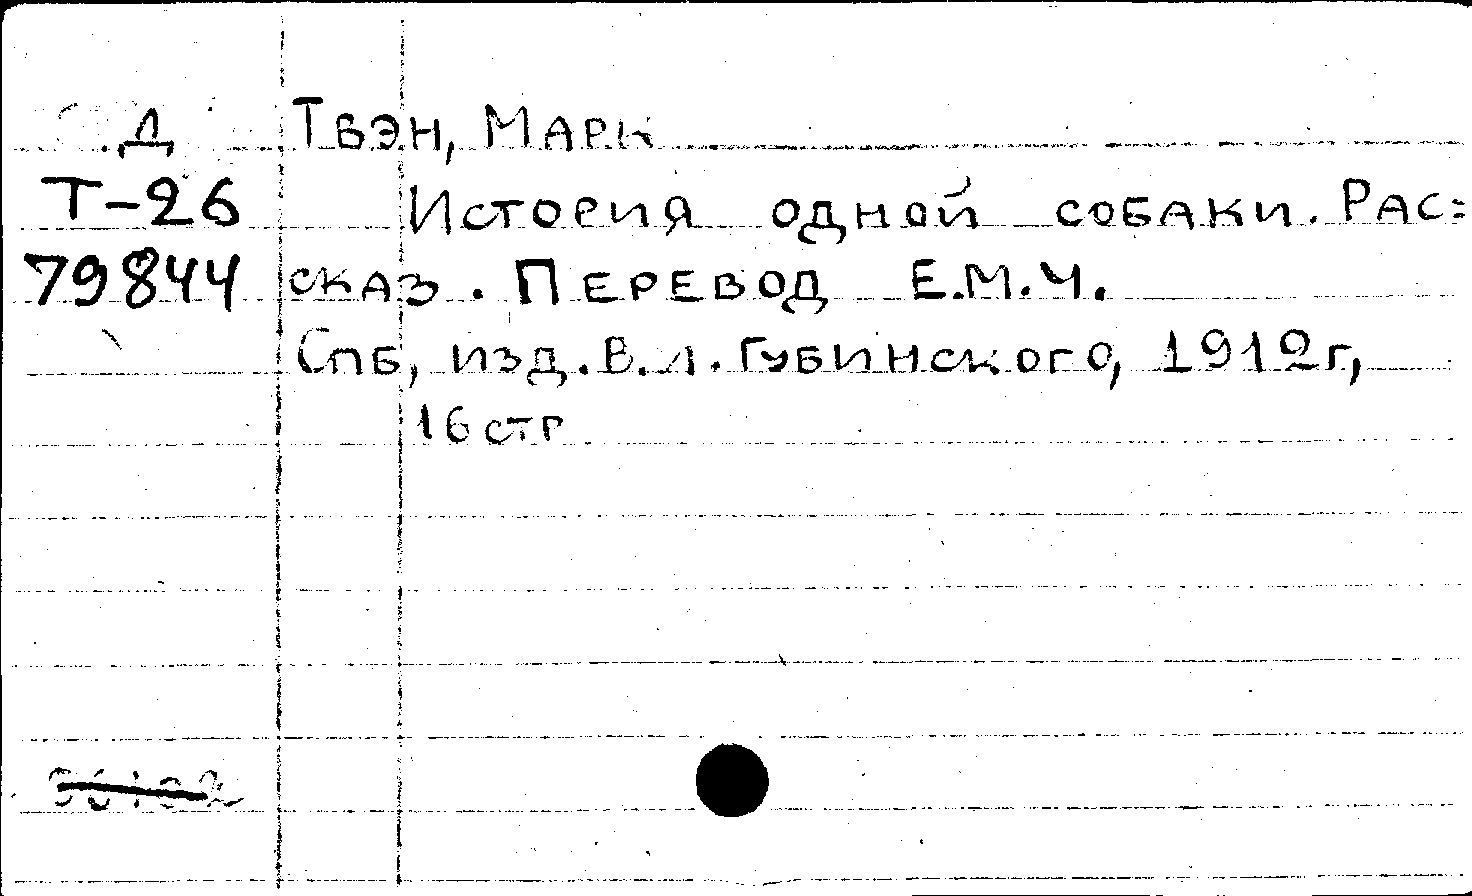 Д Твэн, Марк
Т-26 История одной собаки. Рас=
79844 сказ. Перевод Е.М.Ч.
Спб, изд. В.Л. Губинского, 1912г,
16 стр